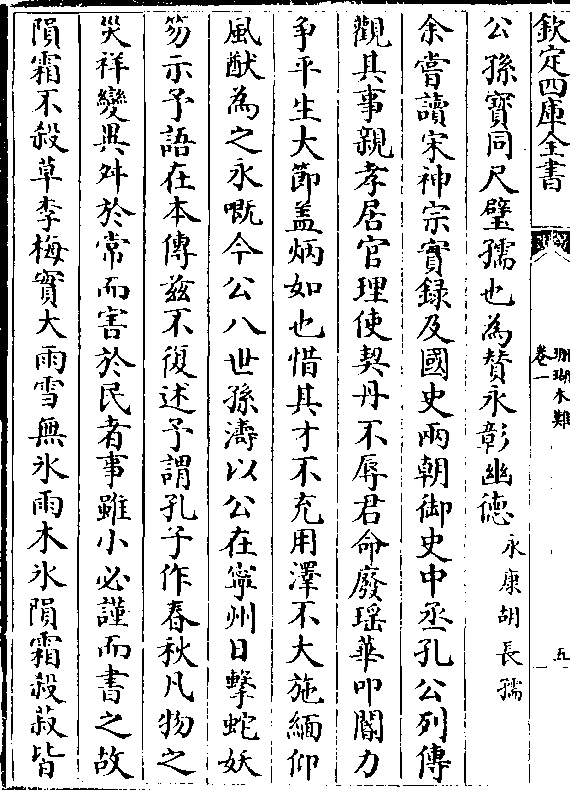 欽定四庫全書
珊瑚木難
卷一
五
公孫寶同尺璧孺也為賛永彰幽德永康胡長孺
余嘗讀宋神宗實録及國史兩朝御史中丞孔公列傳
觀其事親孝居官理使契丹不辱君命廢瑶華叩閽力
争平生大節盖炳如也惜其才不充用澤不大施緬仰
風猷為之永嘅今公八世孫濤以公在寧州日擊蛇妖
笏示予語在本傳兹不復述予謂孔子作春秋凡物之
災祥變異舛於常而害於民者事雖小必謹而書之故
隕霜不殺草李梅實大雨雪無氷雨木氷隕霜殺菽皆